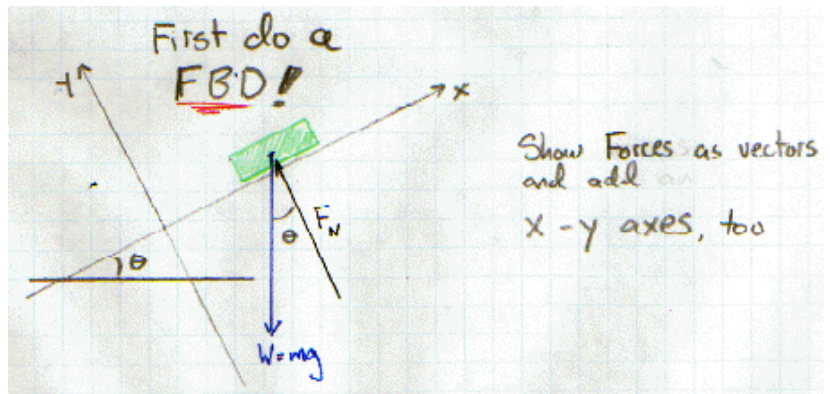 First do a
FBD!
y
x
Show Forces as vectors
and add
x - y axes, too
θ
θ
F_N
W=mg